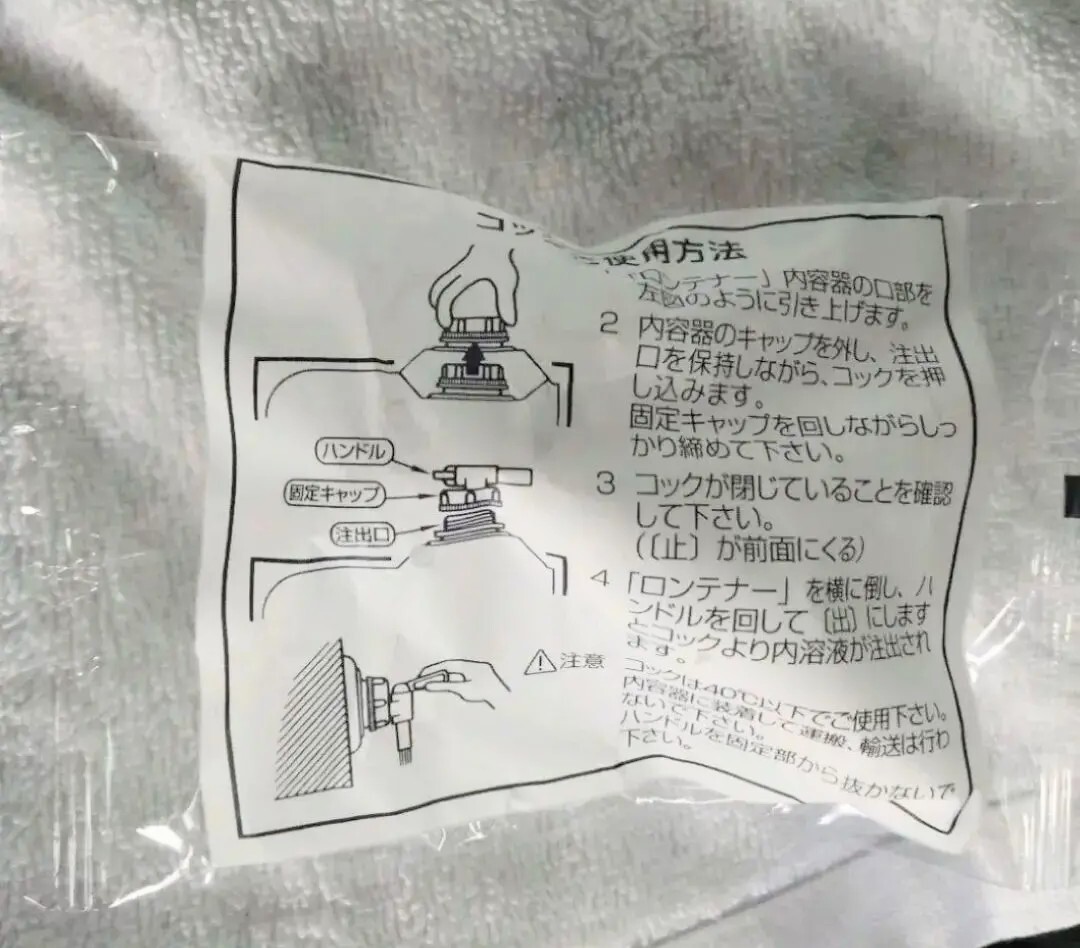 コッ
使用方法
「ロンテナー」内容器の口部を
左図のように引き上げます。
2 内容器のキャップを外し、注出
口を保持しながら、コックを押
し込みます。
固定キャップを回しながらしっ
かり締めて下さい。
3 コックが閉じていることを確認
して下さい。
(〔止〕が前面にくる)
4 「ロンテナー」を横に倒し、ハ
ンドルを回して〔出〕にします
とコックより内溶液が注出され
ます。
⚠注意
コックは40℃以下でご使用下さい。
内容器に装着して運搬、輸送は行わ
ないで下さい。
ハンドルを固定部から抜かないで
下さい。
ハンドル
固定キャップ
注出口